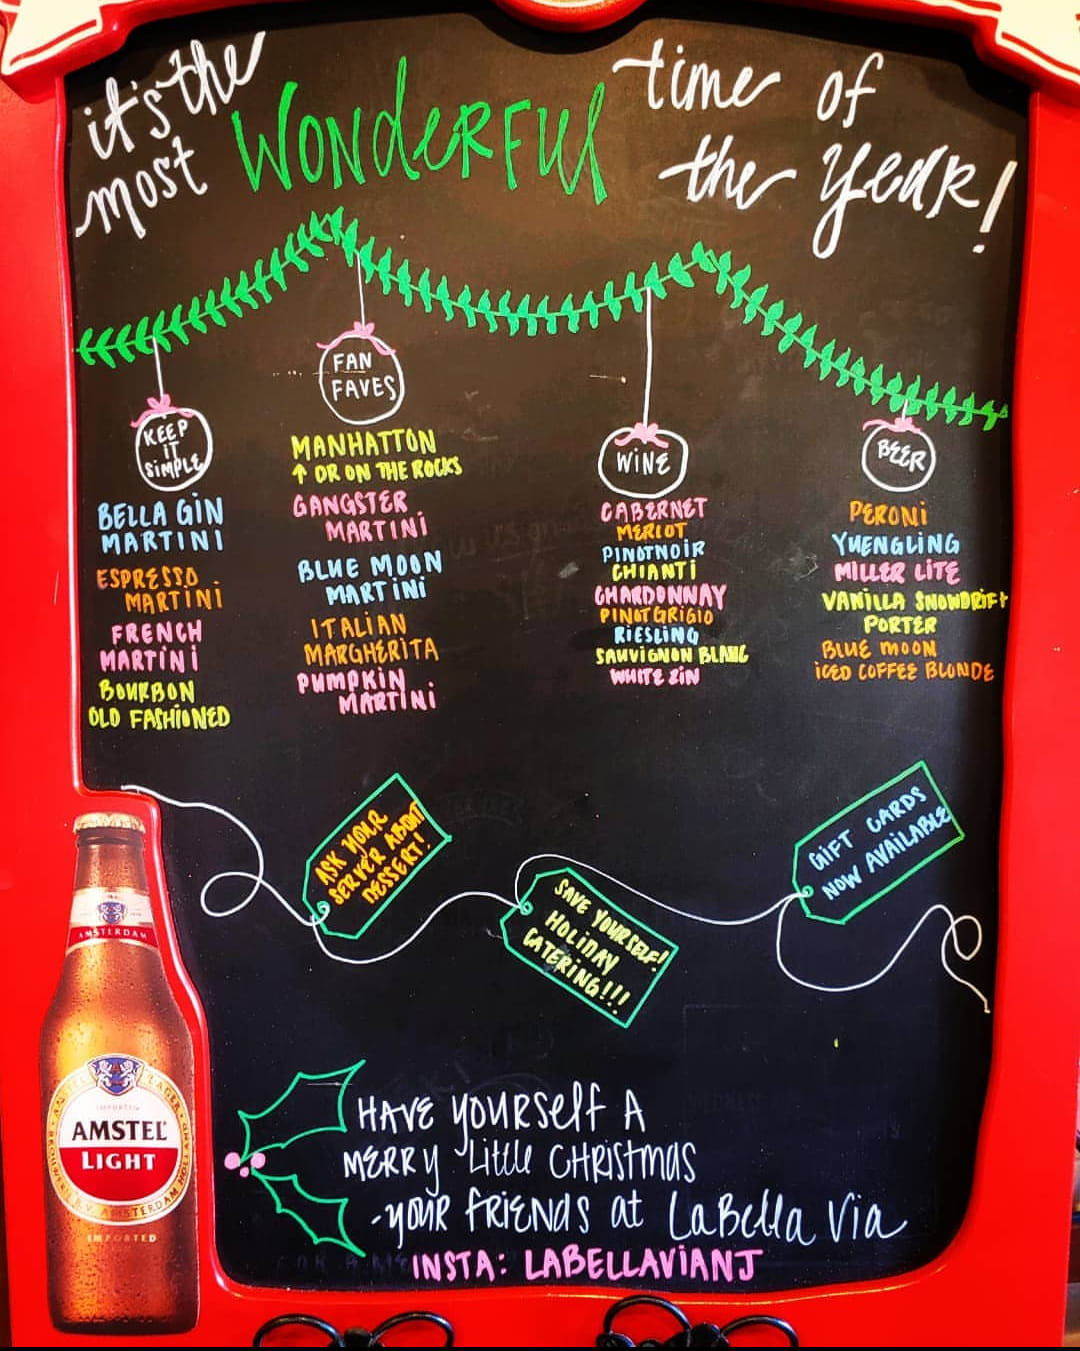 it's the
most
Wonderful
time of
the Year!
KEEP
IT
SIMPLE
BELLA GIN
MARTINI
ESPRESSO
MARTINI
FRENCH
MARTINI
BOURBON
OLD FASHIONED
FAN
FAVES
MANHATTON
↑ OR ON THE ROCKS
GANGSTER
MARTINI
BLUE MOON
MARTINI
ITALIAN
MARGHERITA
PUMPKIN
MARTINI
WINE
CABERNET
MERLOT
PINOT NOIR
CHIANTI
CHARDONNAY
PINOT GRIGIO
RIESLING
SAUVIGNON BLANC
WHITE ZIN
BEER
PERONI
YUENGLING
MILLER LITE
VANILLA SNOWDRIFT
PORTER
BLUE MOON
ICED COFFEE BLONDE
ASK YOUR
SERVER ABOUT
DESSERT!
SAVE YOURSELF!
HOLIDAY
CATERING!!!
GIFT CARDS
NOW AVAILABLE
AMSTERDAM
IMPORTED
AMSTEL
LIGHT
IMPORTED
HAVE YOURSELF A
MERRY Little CHRISTMAS
-YOUR FRIENDS at LaBella Via
INSTA: LABELLAVIANJ